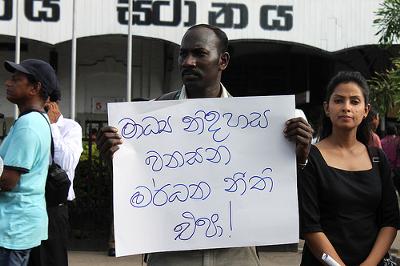 ස්ථානය
මාධ්‍ය නිදහස
වනසන
මර්ධන නීති
එපා!